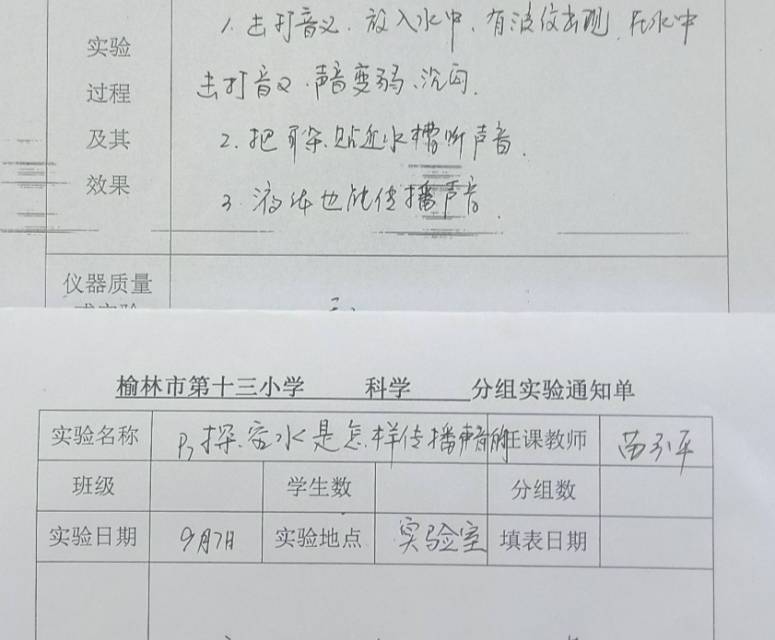 1. 击打音叉. 放入水中, 有波纹出现. 在水中
实验
过程
及其
效果
击打音叉. 声音变弱、沉闷.
2. 把耳朵贴近水槽听声音.
3. 液体也能传播声音.
仪器质量
榆林市第十三小学 科学 分组实验通知单
实验名称 P7 探究水是怎样传播声音的 任课教师
班级 学生数 分组数
实验日期 9月7日 实验地点 实验室 填表日期